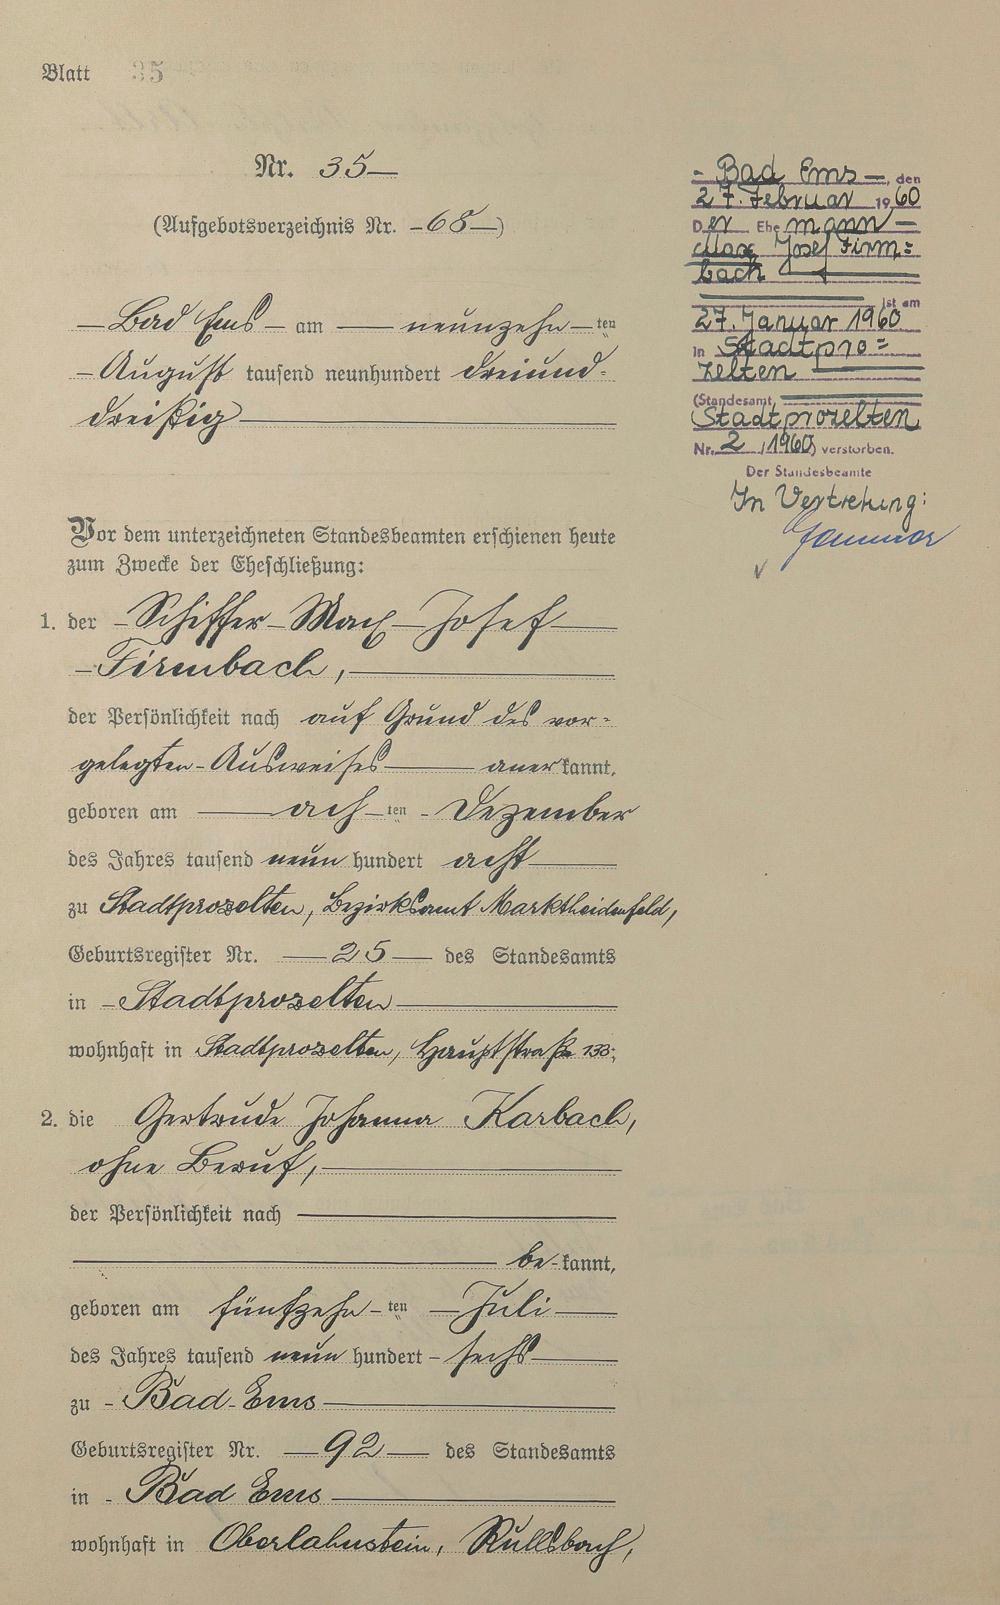 Blatt 35
Nr. 35
(Aufgebotsverzeichnis Nr. 68)
Bad Ems am neunzehn ten
August tausend neunhundert dreiund-
dreißig
Vor dem unterzeichneten Standesbeamten erschienen heute
zum Zwecke der Eheschließung:
1. der Schiffer Max Josef
Firmbach,
der Persönlichkeit nach auf Grund des vor-
gelegten Ausweises aner kannt,
geboren am ach ten Dezember
des Jahres tausend neun hundert acht
zu Stadtprozelten, Bezirksamt Marktheidenfeld,
Geburtsregister Nr. 25 des Standesamts
in Stadtprozelten
wohnhaft in Stadtprozelten, Hauptstraße 133;
2. die Gertrude Johanna Karbach,
ohne Beruf,
der Persönlichkeit nach
be kannt,
geboren am fünfzehn ten Juli
des Jahres tausend neun hundert sechs
zu Bad Ems
Geburtsregister Nr. 92 des Standesamts
in Bad Ems
wohnhaft in Oberlahnstein,
Bad Ems, den
27. Februar 1960
Der Ehemann
Max Josef Firm=
bach
ist am
27. Januar 1960
in Stadtpro=
zelten
(Standesamt
Stadtprozelten
Nr. 2 /1960) verstorben.
Der Standesbeamte
In Vertretung: